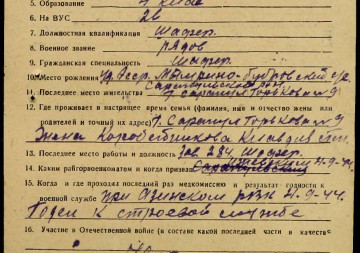 5. Образование 4 класса
6. На ВУС 26
7. Должностная квалификация Шофер.
8. Военное звание рядов
9. Гражданская специальность Шофер.
10. Место рождения Уд. Асср.
Сарапульский р-н
11. Последнее место жительства г. Сарапул Горькова 9
12. Где проживает в настоящее время семья (фамилия, имя и отчество жены или
родителей и точный их адрес) г. Сарапул Горькова 9
Жена Коробейникова
13. Последнее место работы и должность Зав. 284 Шофер
14. Каким райгорвоенкоматом и когда призван 4-9-44.
15. Когда и где проходил последний раз медкомиссию и результат годности к
военной службе при рвк 4-9-44.
Годен к строевой службе
16. Участие в Отечественной войне (в составе какой последней части и в качестве